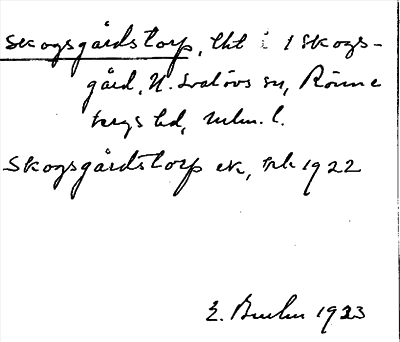 Skogsgårdstorp, lht i 1 Skogs-
gård, N. Svalövs sn, Rönne
bergs hd, Mlm. l.
Skogsgårdstorp ek, 1922
E. 1923